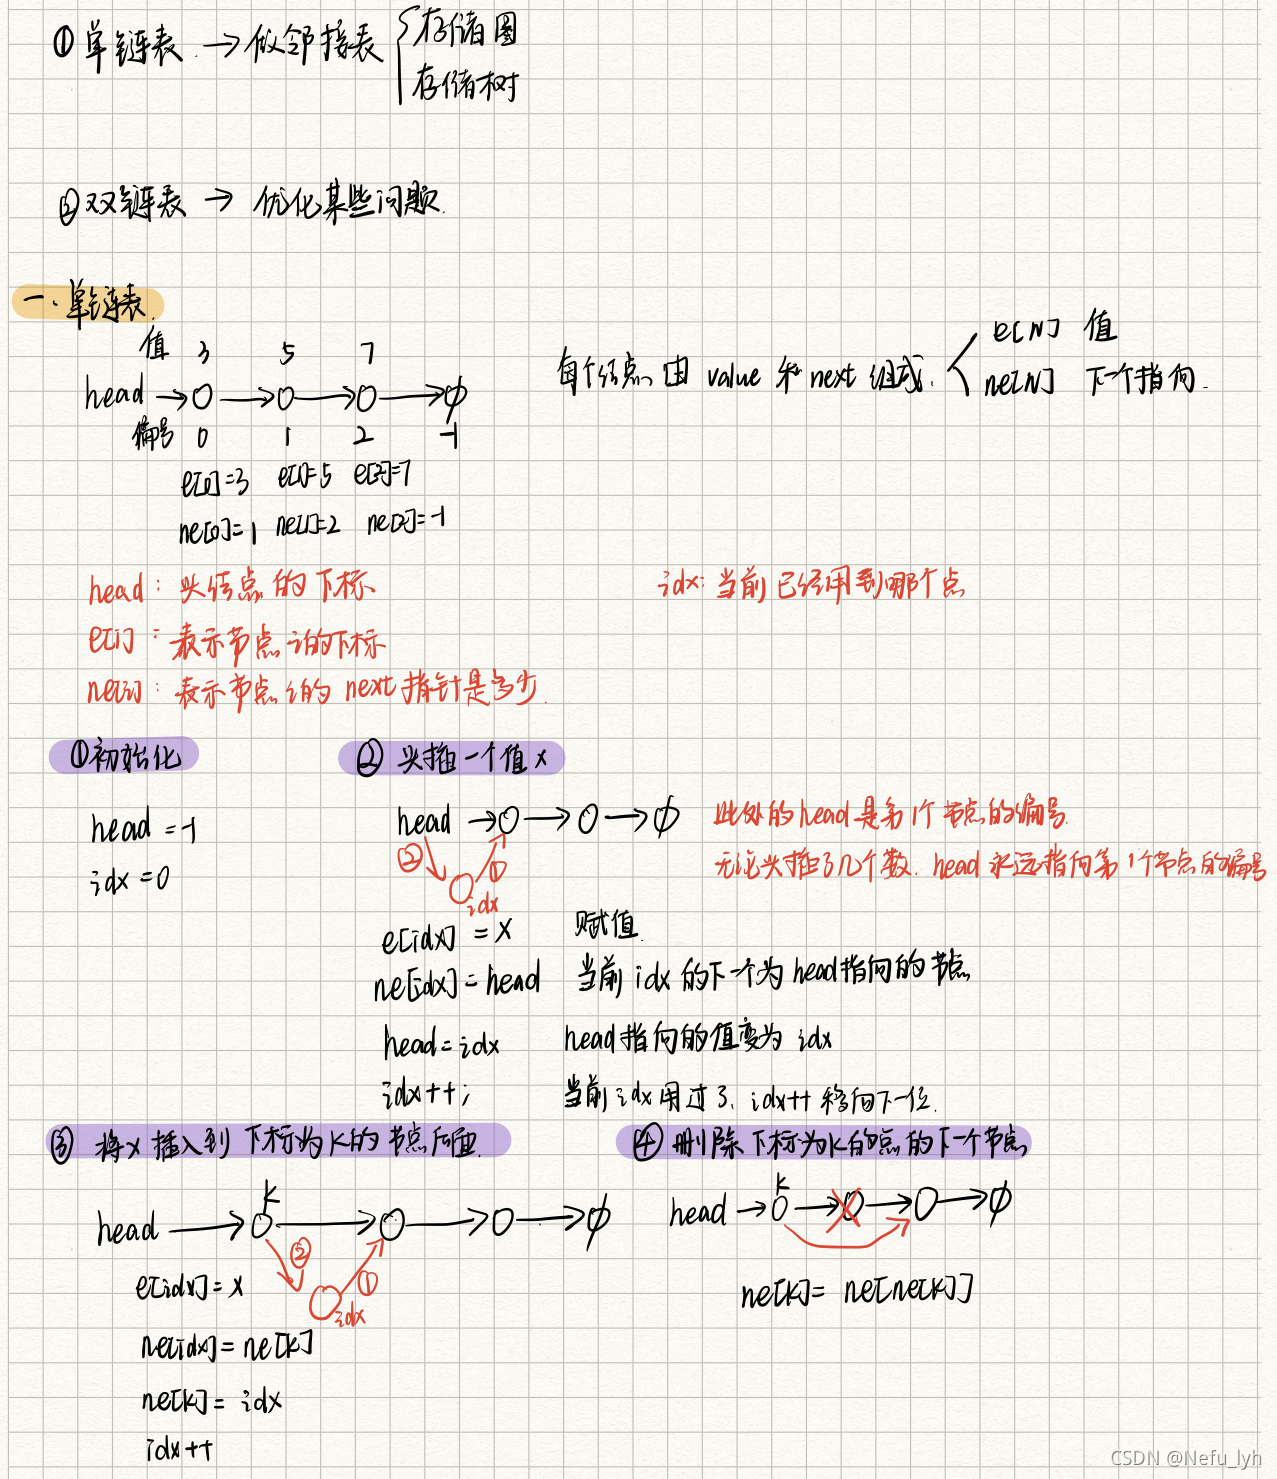 ① 单链表 → 做邻接表 { 存储图
存储树
② 双链表 → 优化某些问题.
一. 单链表.
值 3 5 7
head → O → O → O → ∅
编号 0 1 2 -1
每个结点由 value 和 next 组成.
e[N] 值
ne[N] 下一个指向.
e[0]=3 e[1]=5 e[2]=7
ne[0]=1 ne[1]=2 ne[2]=-1
head: 头结点的下标
idx: 当前已经用到哪个点
e[i]: 表示节点i的下标
ne[i]: 表示节点i的 next 指针是多少.
① 初始化
head = -1
idx = 0
② 头插一个值 x
head → O → O → ∅
② ①
idx
此处的 head 是第1个节点的编号.
无论头插了几个数. head 永远指向第1个节点的编号
e[idx] = x 赋值.
ne[idx] = head 当前 idx 的下一个为 head 指向的节点
head = idx head 指向的值变为 idx
idx++; 当前 idx 用过了、idx++ 移向下一位.
③ 将 x 插入到下标为 k 的节点后面.
k
head → O → O → O → ∅
② ①
idx
e[idx] = x
ne[idx] = ne[k]
ne[k] = idx
idx++
④ 删除下标为k的点的下一个节点
k
head → O → O → O → ∅
ne[k] = ne[ne[k]]
CSDN @Nefu_lyh